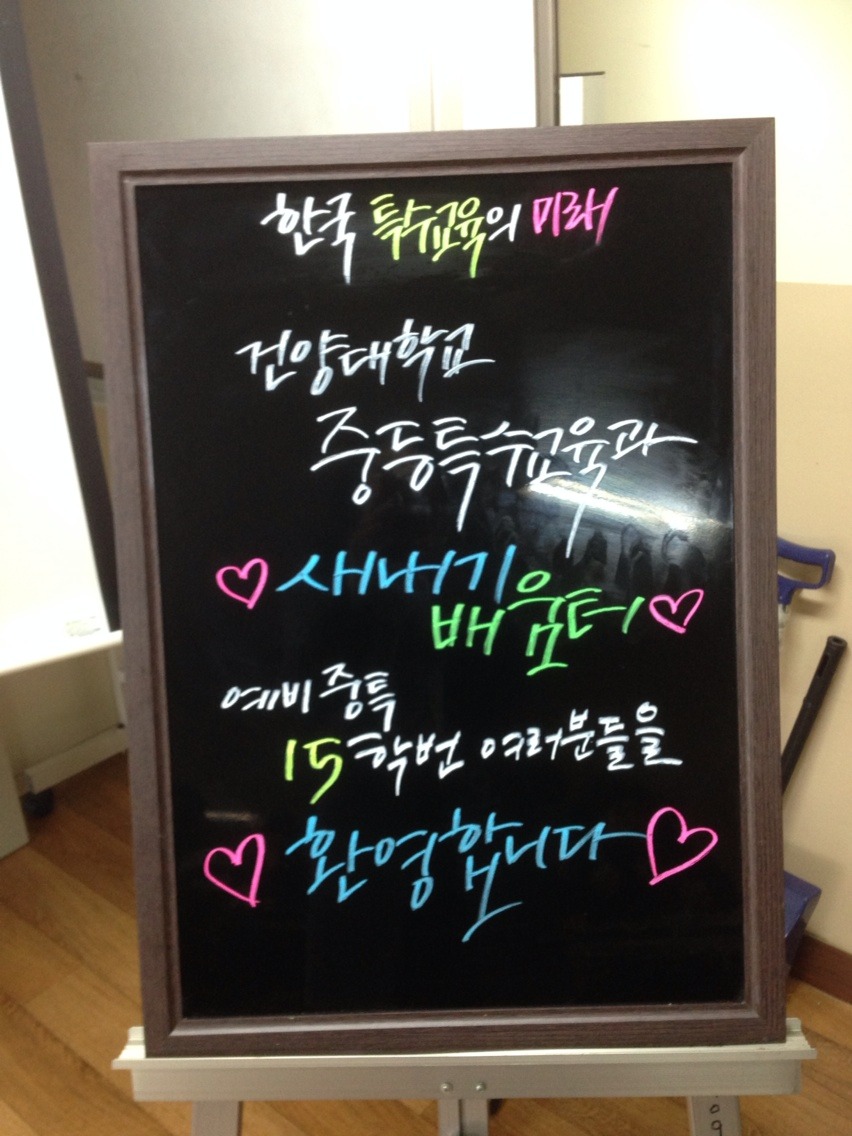 한국 특수교육의 미래
건양대학교
중등특수교육과
♡ 새내기
배움터 ♡
예비 중특
15학번 여러분들을
♡ 환영합니다 ♡
09